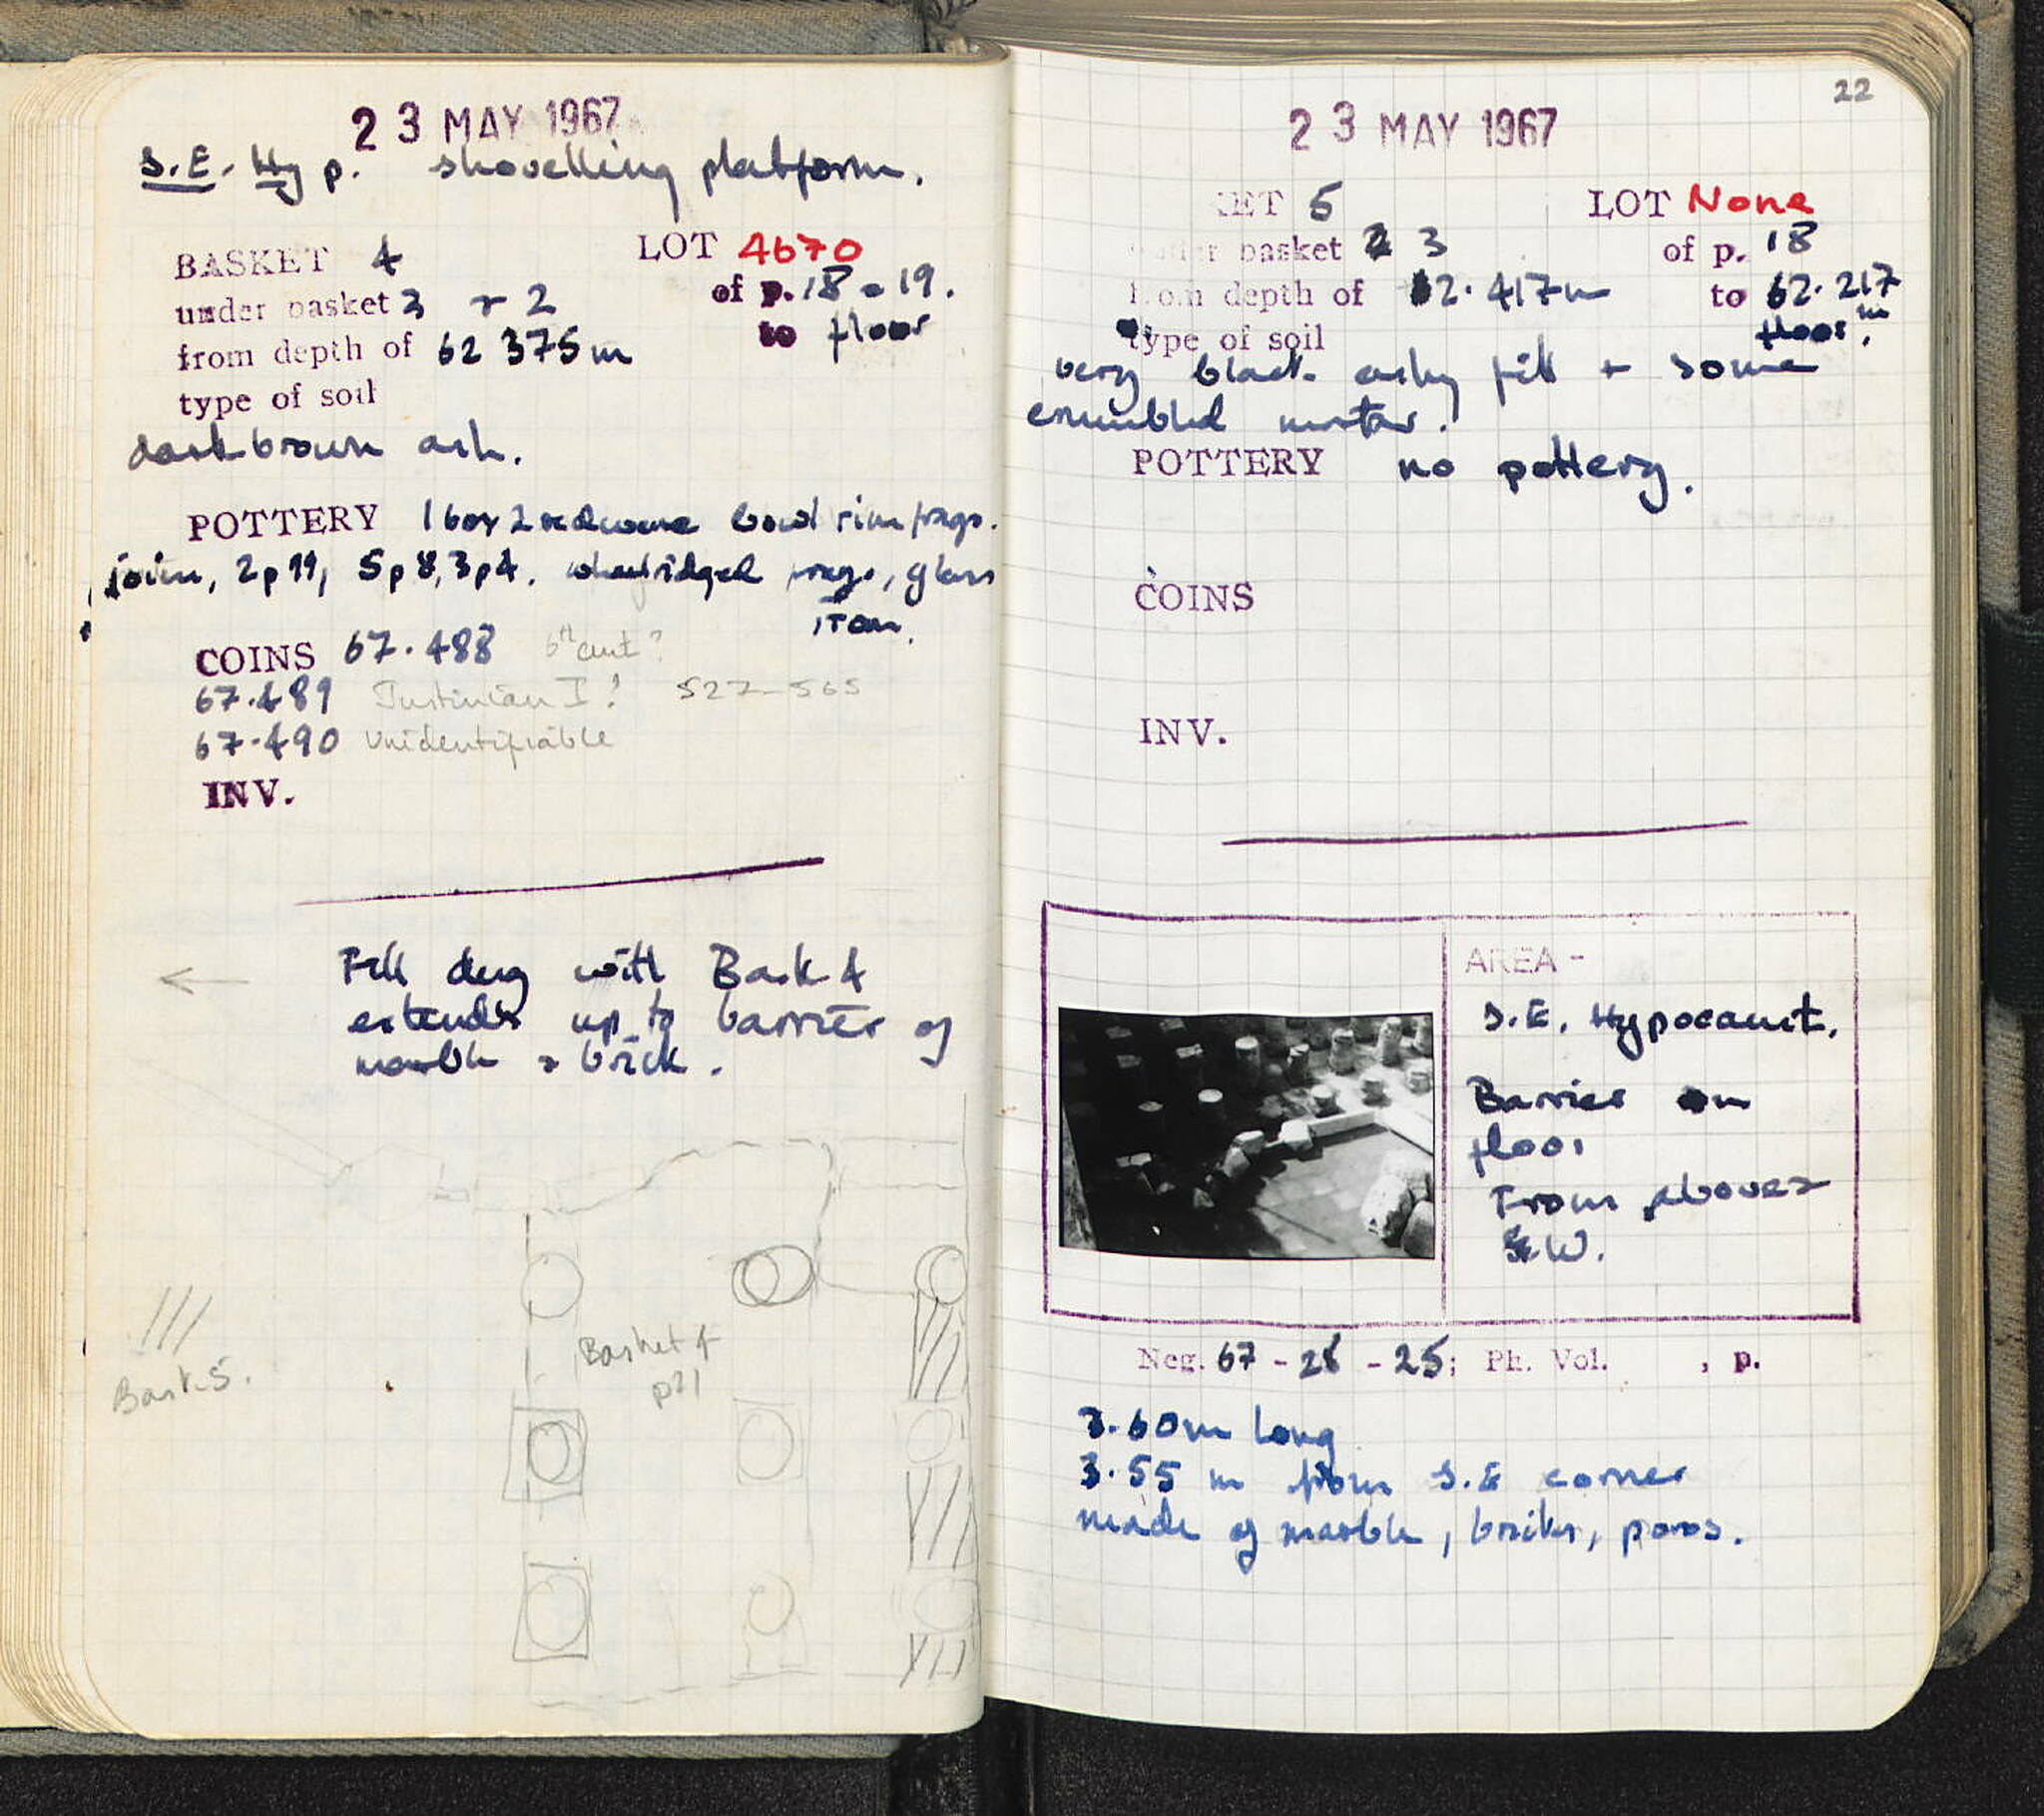 23 MAY 1967
S.E. Hyp. shovelling platform.
BASKET 4 LOT 4670
under basket 3 + 2 of p. 18 + 19.
from depth of 62 375m to floor
type of soil
dark brown ash.
POTTERY 1 bowl rim frags.
join, 2p19, 5p8, 3p4. wheelridged frags, glass
COINS 67.488 6th cent?
67.489 Justinian I? 527-565
67.490 Unidentifiable
INV.
Fill dug with Bask 4
extends up to barrier of
marble + brick.
Basket 4
p21
Bask 5.
22
23 MAY 1967
KET 5 LOT None
under basket 3 of p. 18
from depth of 62.417m to 62.217
m
type of soil floor.
very black ashy fill + some
crumbled mortar.
POTTERY no pottery.
COINS
INV.
AREA -
S.E. Hypocaust.
Barrier on
floor
From above
W.
Neg. 67 - 28 - 25; Ph. Vol. , p.
3.60m long
3.55 m from S.E corner
made of marble, bricks, poros.